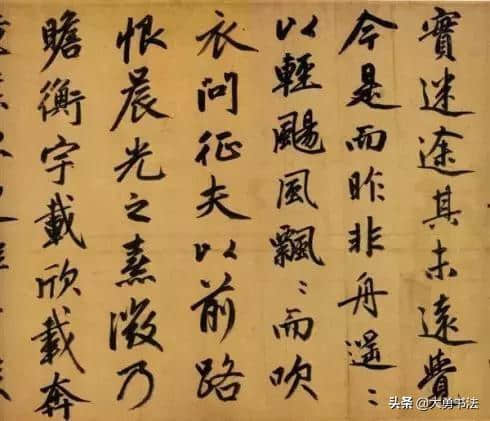 實迷途其未遠覺
今是而昨非舟遥〻
以輕颺風飄〻而吹
衣問征夫以前路
恨晨光之熹微乃
瞻衡宇載欣載奔
头条 @大勇书法